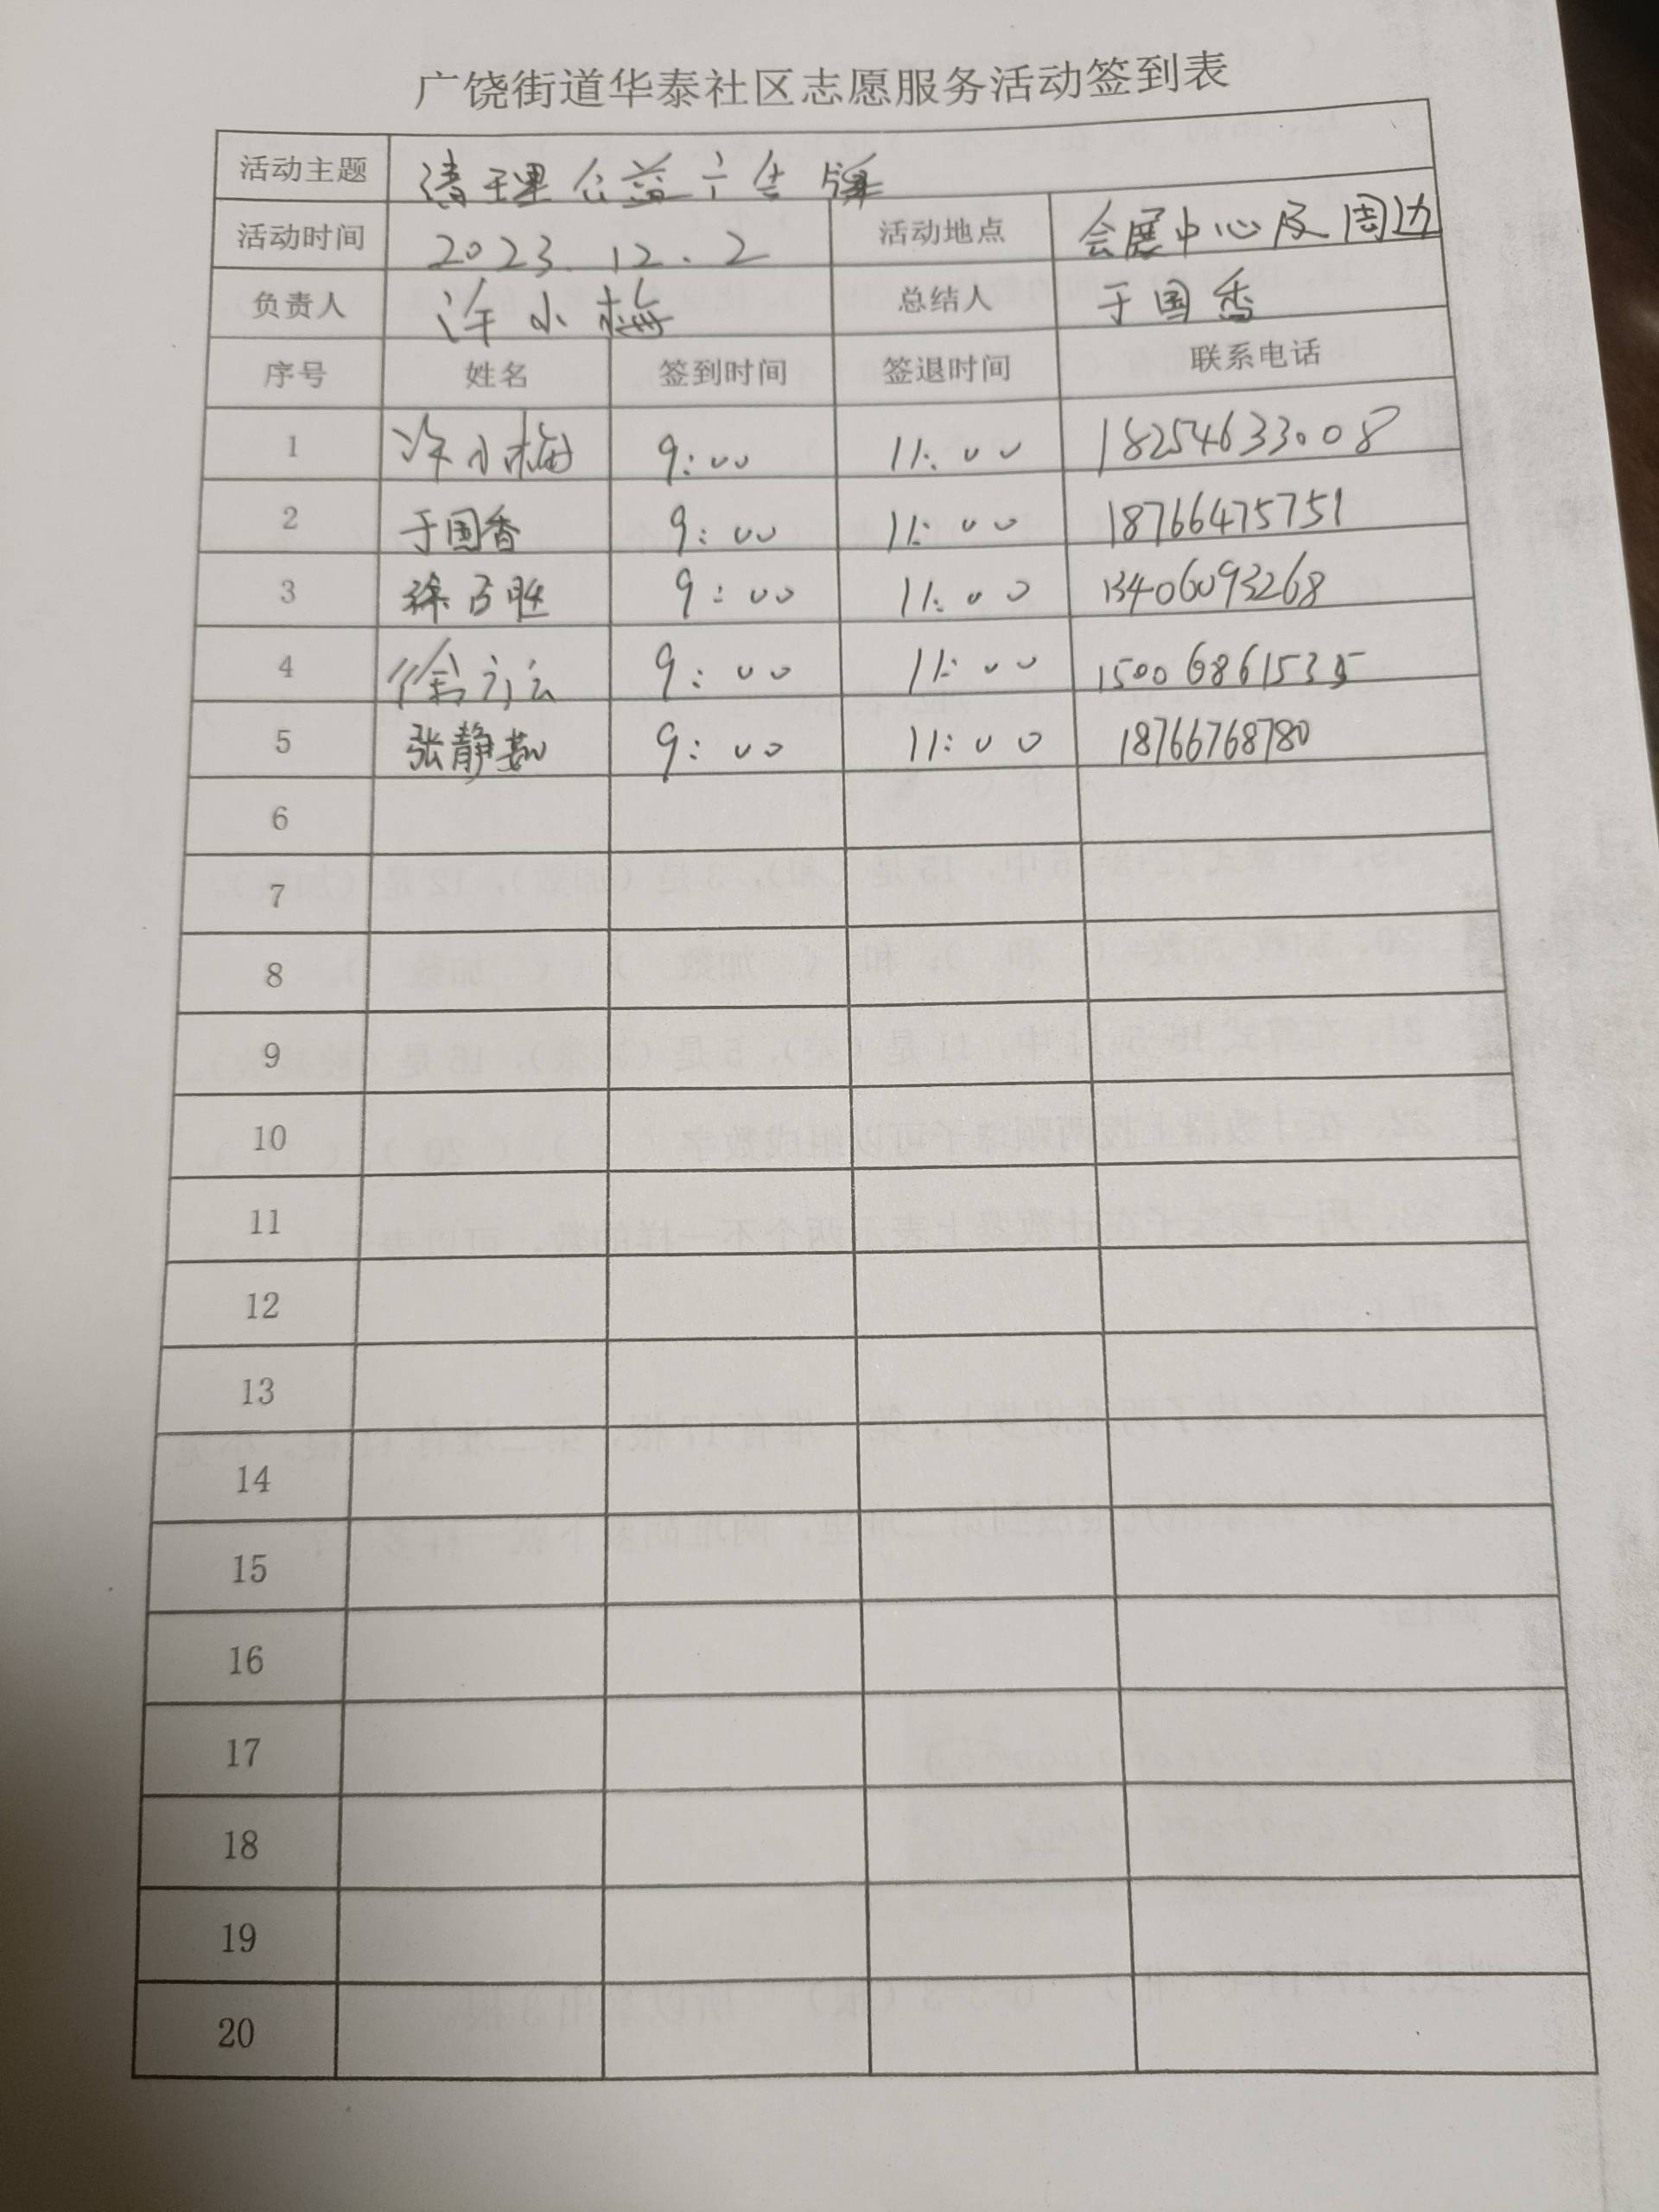 广饶街道华泰社区志愿服务活动签到表
活动主题 清理公益广告牌
活动时间 2023.12.2 活动地点 会展中心及周边
负责人 许小梅 总结人 于国香
序号 姓名 签到时间 签退时间 联系电话
1 许小梅 9:00 11:00 18254633008
2 于国香 9:00 11:00 18766475751
3 9:00 11:00 13406093268
4 徐 9:00 11:00
5 张静茹 9:00 11:00 18766768780
6
7
8
9
10
11
12
13
14
15
16
17
18
19
20